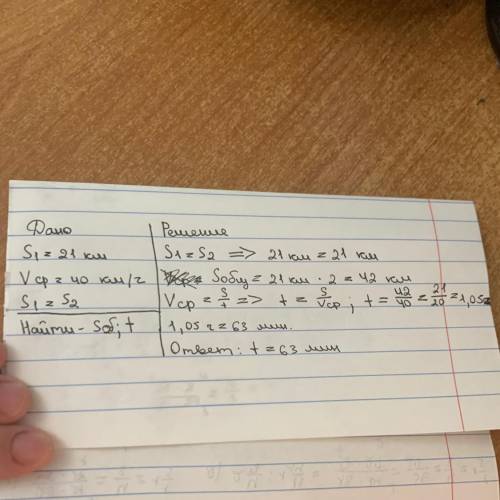 Дано
S1 = 21 км
Vср = 40 км/ч
S1 = S2
Найти - Sоб; t
Решение
S1 = S2 => 21 км = 21 км
Sобщ = 21 км · 2 = 42 км
Vср = S/t => t = S/Vср ; t = 42/40 = 21/20 = 1,05ч
1,05 ч = 63 мин.
Ответ: t = 63 мин